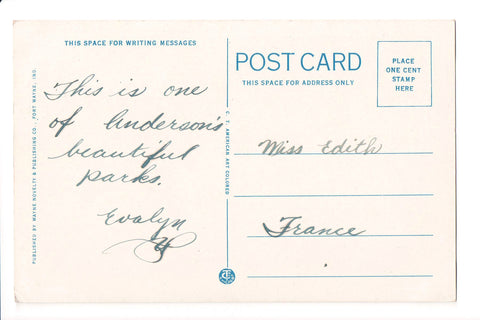 THIS SPACE FOR WRITING MESSAGES
This is one
of Anderson's
beautiful
parks.
Evalyn
PUBLISHED BY WAYNE NOVELTY & PUBLISHING CO., FORT WAYNE, IND.
C. T. AMERICAN ART COLORED
POST CARD
THIS SPACE FOR ADDRESS ONLY
PLACE
ONE CENT
STAMP
HERE
Miss Edith
France